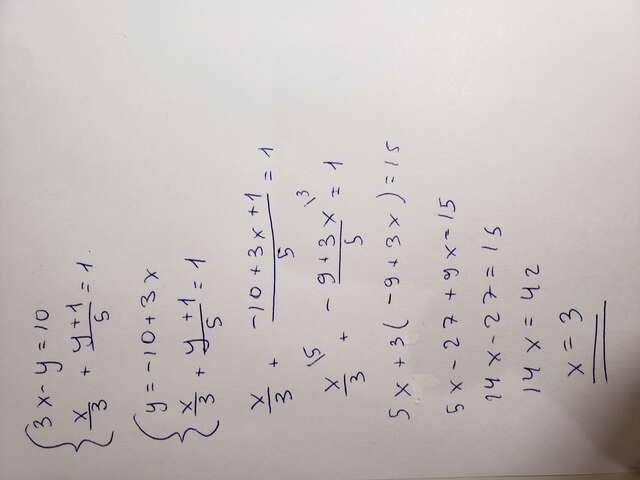 3x - y = 10
x/3 + (y+1)/5 = 1.
y = -10 + 3x
x/3 + (y+1)/5 = 1
x/3 + (-10 + 3x + 1)/5 = 1
x/3 \5 + (-9 + 3x)/5 \3 = 1
5x + 3(-9 + 3x) = 15
5x - 27 + 9x = 15
14x - 27 = 15
14x = 42
x = 3